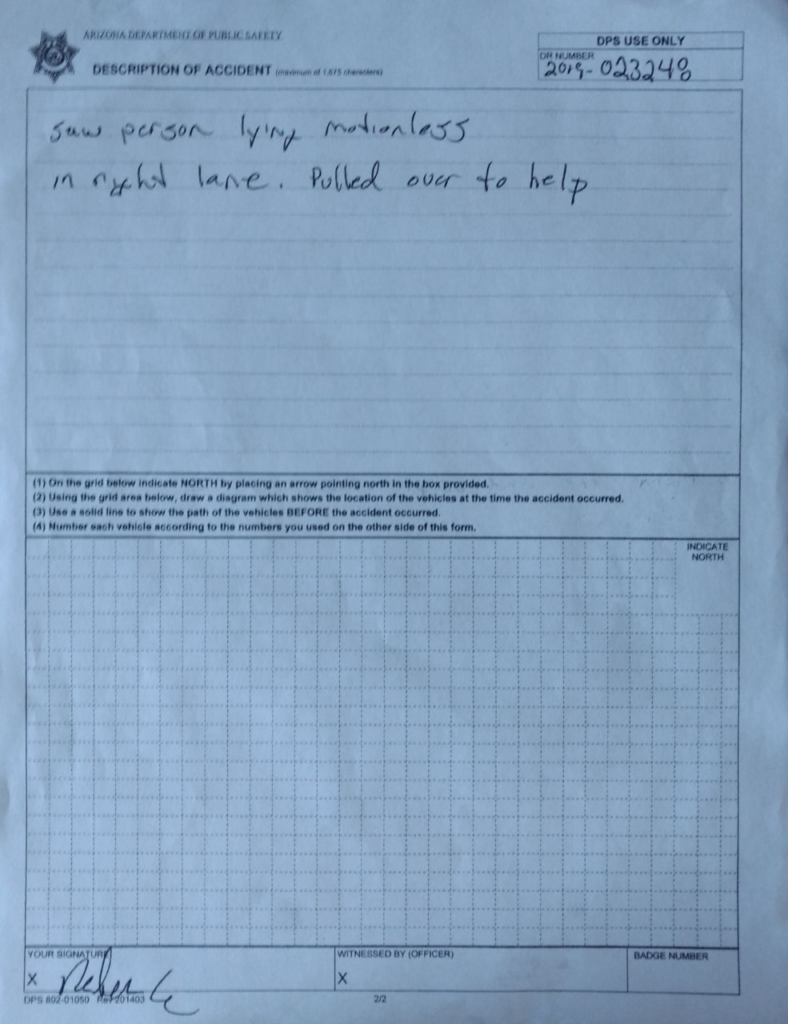 ARIZONA DEPARTMENT OF PUBLIC SAFETY
DESCRIPTION OF ACCIDENT (maximum of 1,675 characters)
DPS USE ONLY
DR NUMBER
2019-023248
saw person lying motionless
in right lane. Pulled over to help
(1) On the grid below indicate NORTH by placing an arrow pointing north in the box provided.
(2) Using the grid area below, draw a diagram which shows the location of the vehicles at the time the accident occurred.
(3) Use a solid line to show the path of the vehicles BEFORE the accident occurred.
(4) Number each vehicle according to the numbers you used on the other side of this form.
INDICATE
NORTH
YOUR SIGNATURE
X
WITNESSED BY (OFFICER)
X
BADGE NUMBER
DPS 802-01050 Rev 201403
2/2